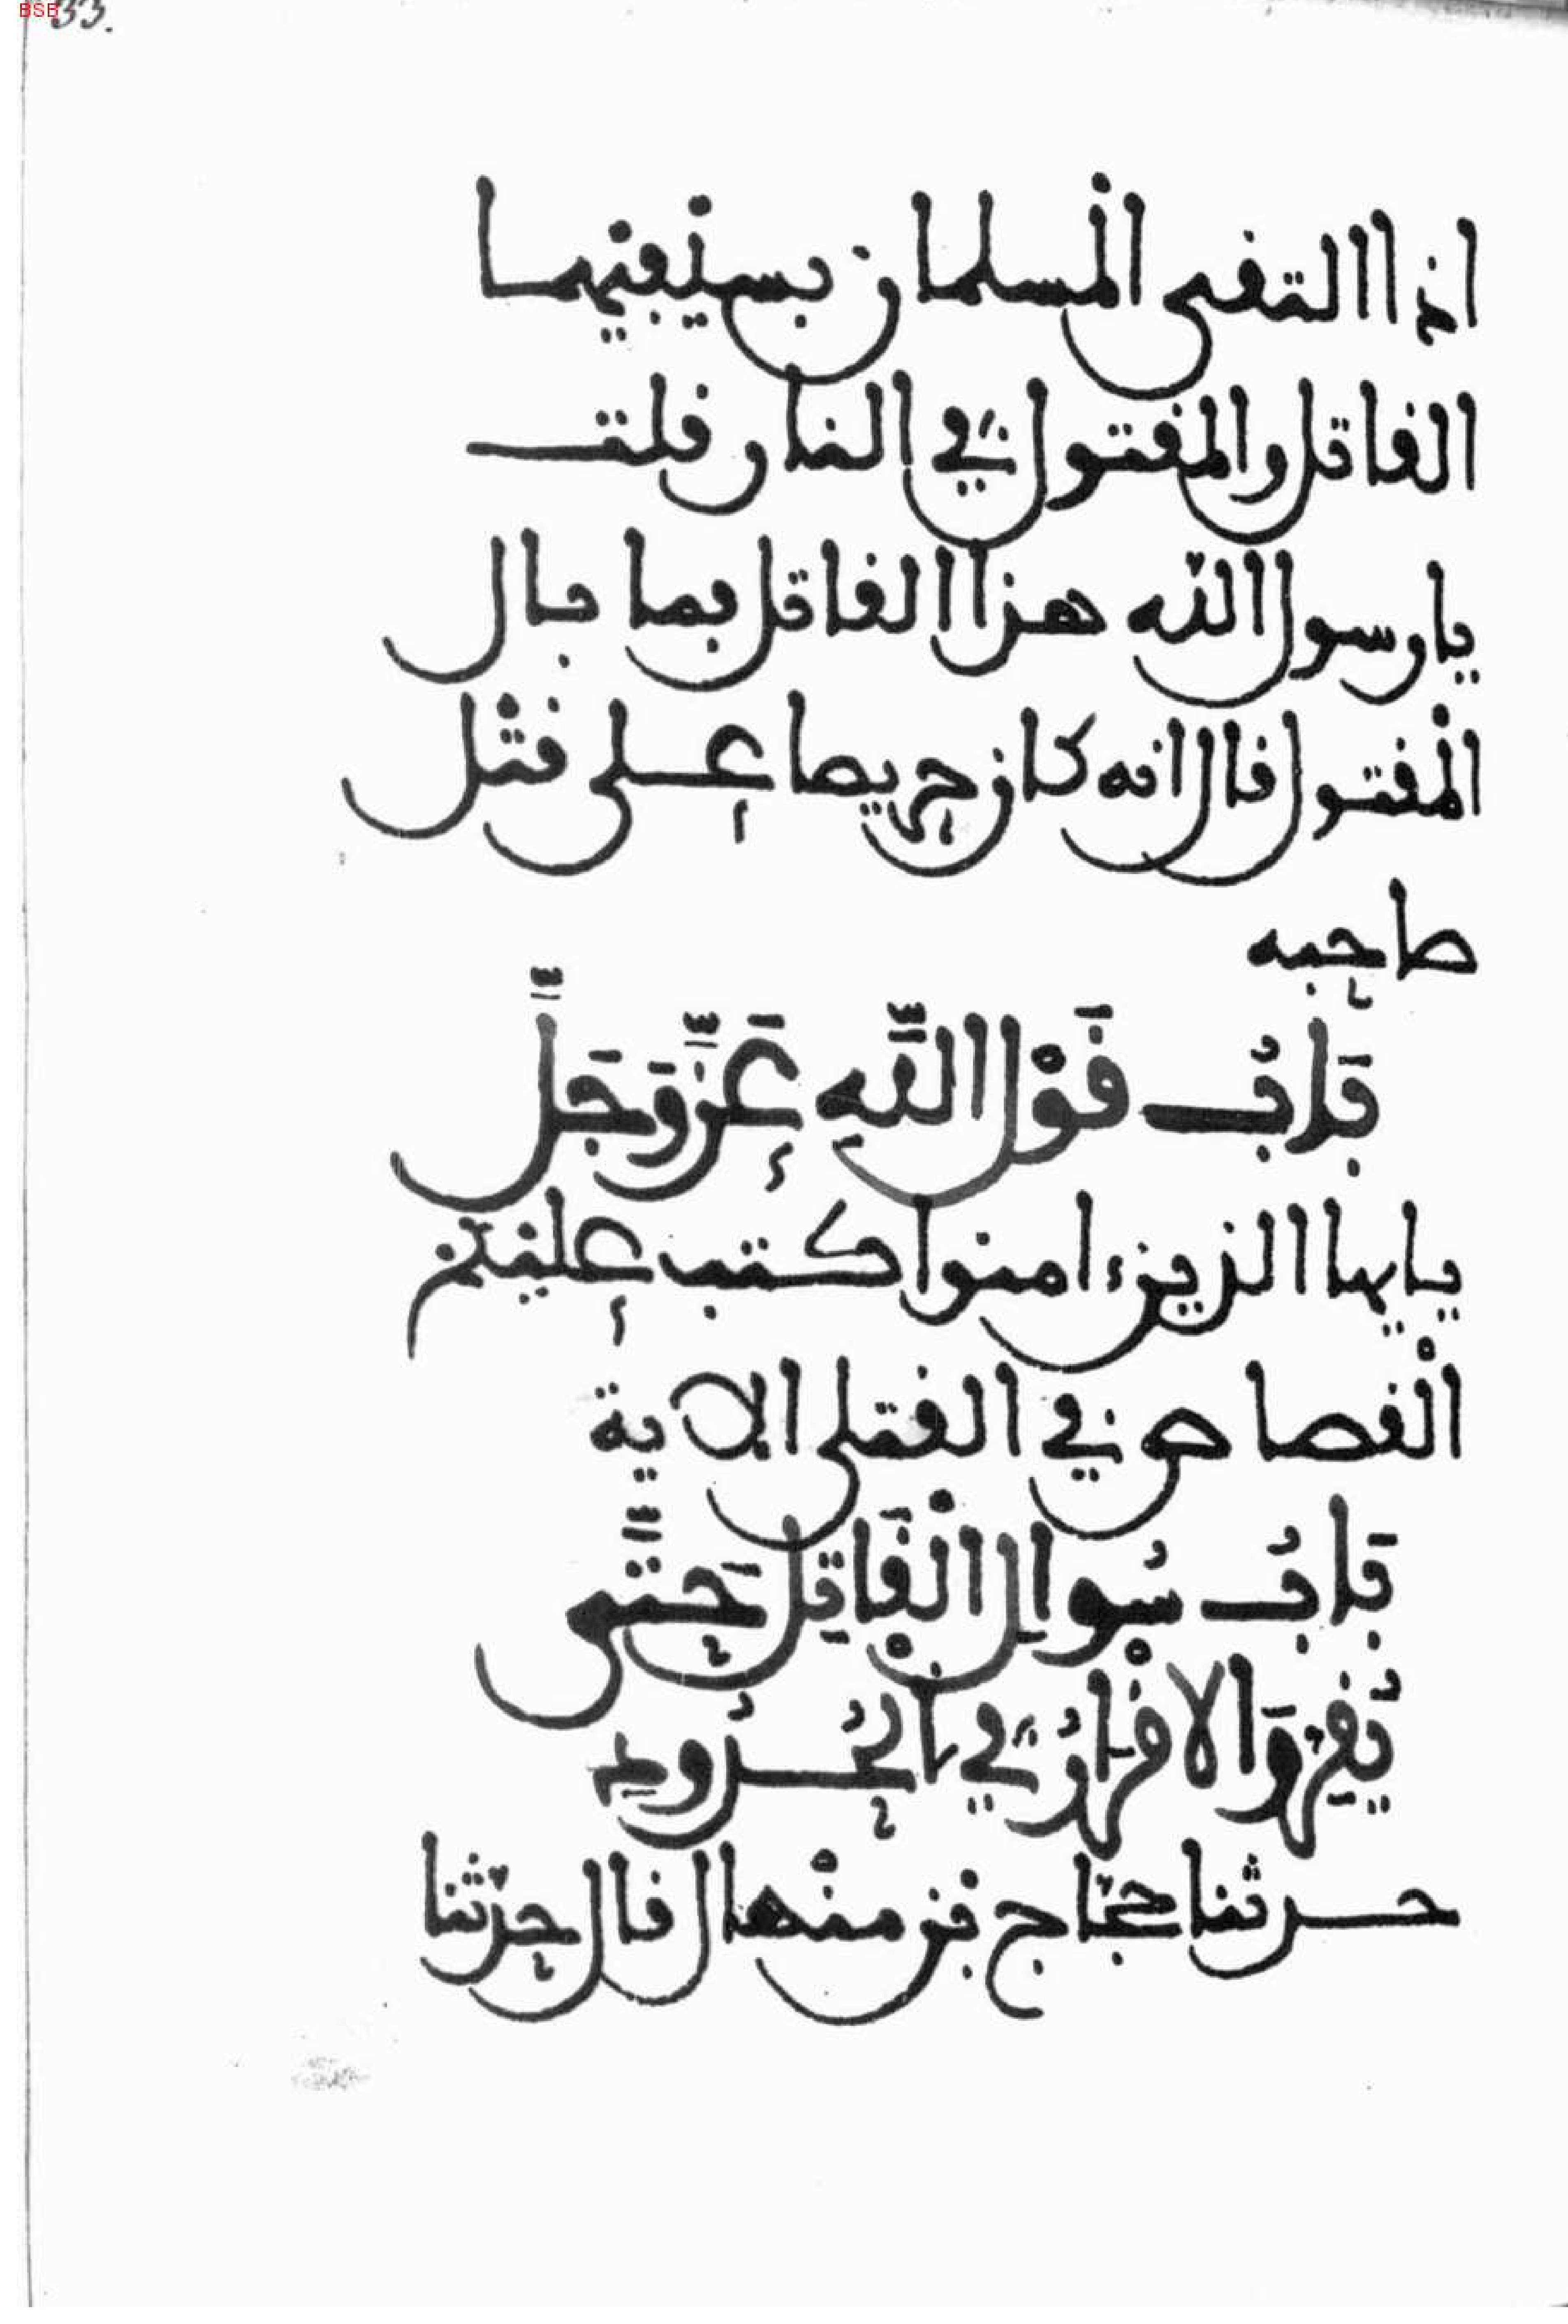 BSB 33.
اذا التقى المسلمان بسيفيهما
القاتل والمقتول في النار قلت
يا رسول الله هذا القاتل فما بال
المقتول قال انه كان حريصا على قتل
صاحبه
بَابُ قَوْلِ اللَّهِ عَزَّ وَجَلَّ
يايها الذين ءامنوا كتب عليكم
القصاص في القتلى الاية
بَابُ سُوالِ الْقَاتِلِ حَتَّى
يُقِرَّ وَالاقْرَارُ فِي الْحُدُودِ
حدثنا حجاج بن منْهال قال حدّثنا